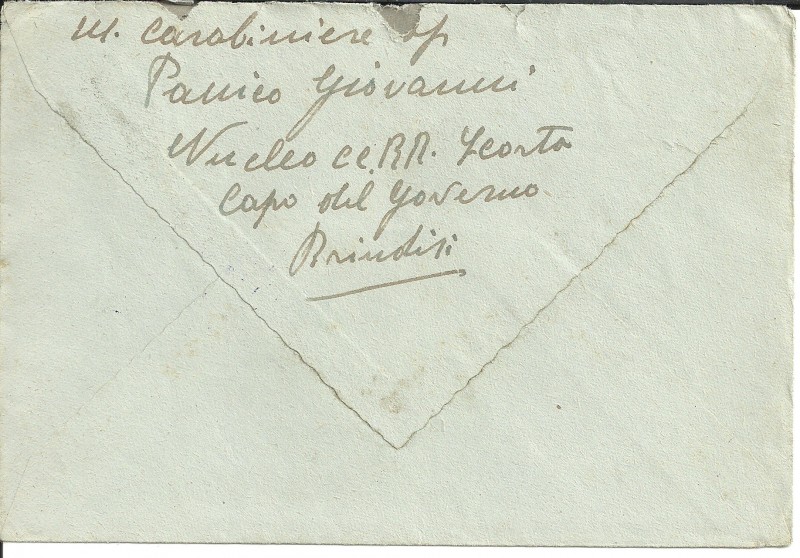 M. Carabiniere
Panico Giovanni
Nucleo CC.RR. Scorta
Capo del Governo
Brindisi